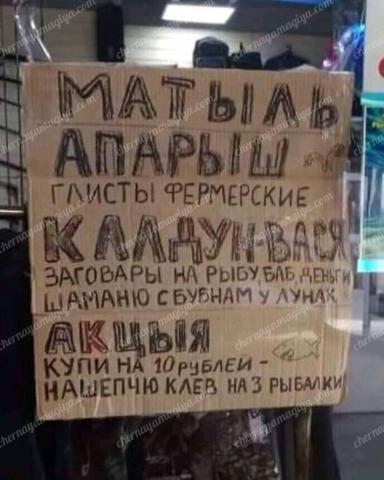 МАТЫЛЬ
АПАРЫШ
ГЛИСТЫ ФЕРМЕРСКИЕ
КАЛДУН-ВАСЯ
ЗАГОВАРЫ НА РЫБУ, БАБ, ДЕНЬГИ
ШАМАНЮ С БУБНАМ У ЛУНАХ
АКЦЫЯ
КУПИ НА 10 рублЕЙ -
НАШЕПЧЮ КЛЕВ НА 3 РЫБАЛКИ
chernayamagiya.com